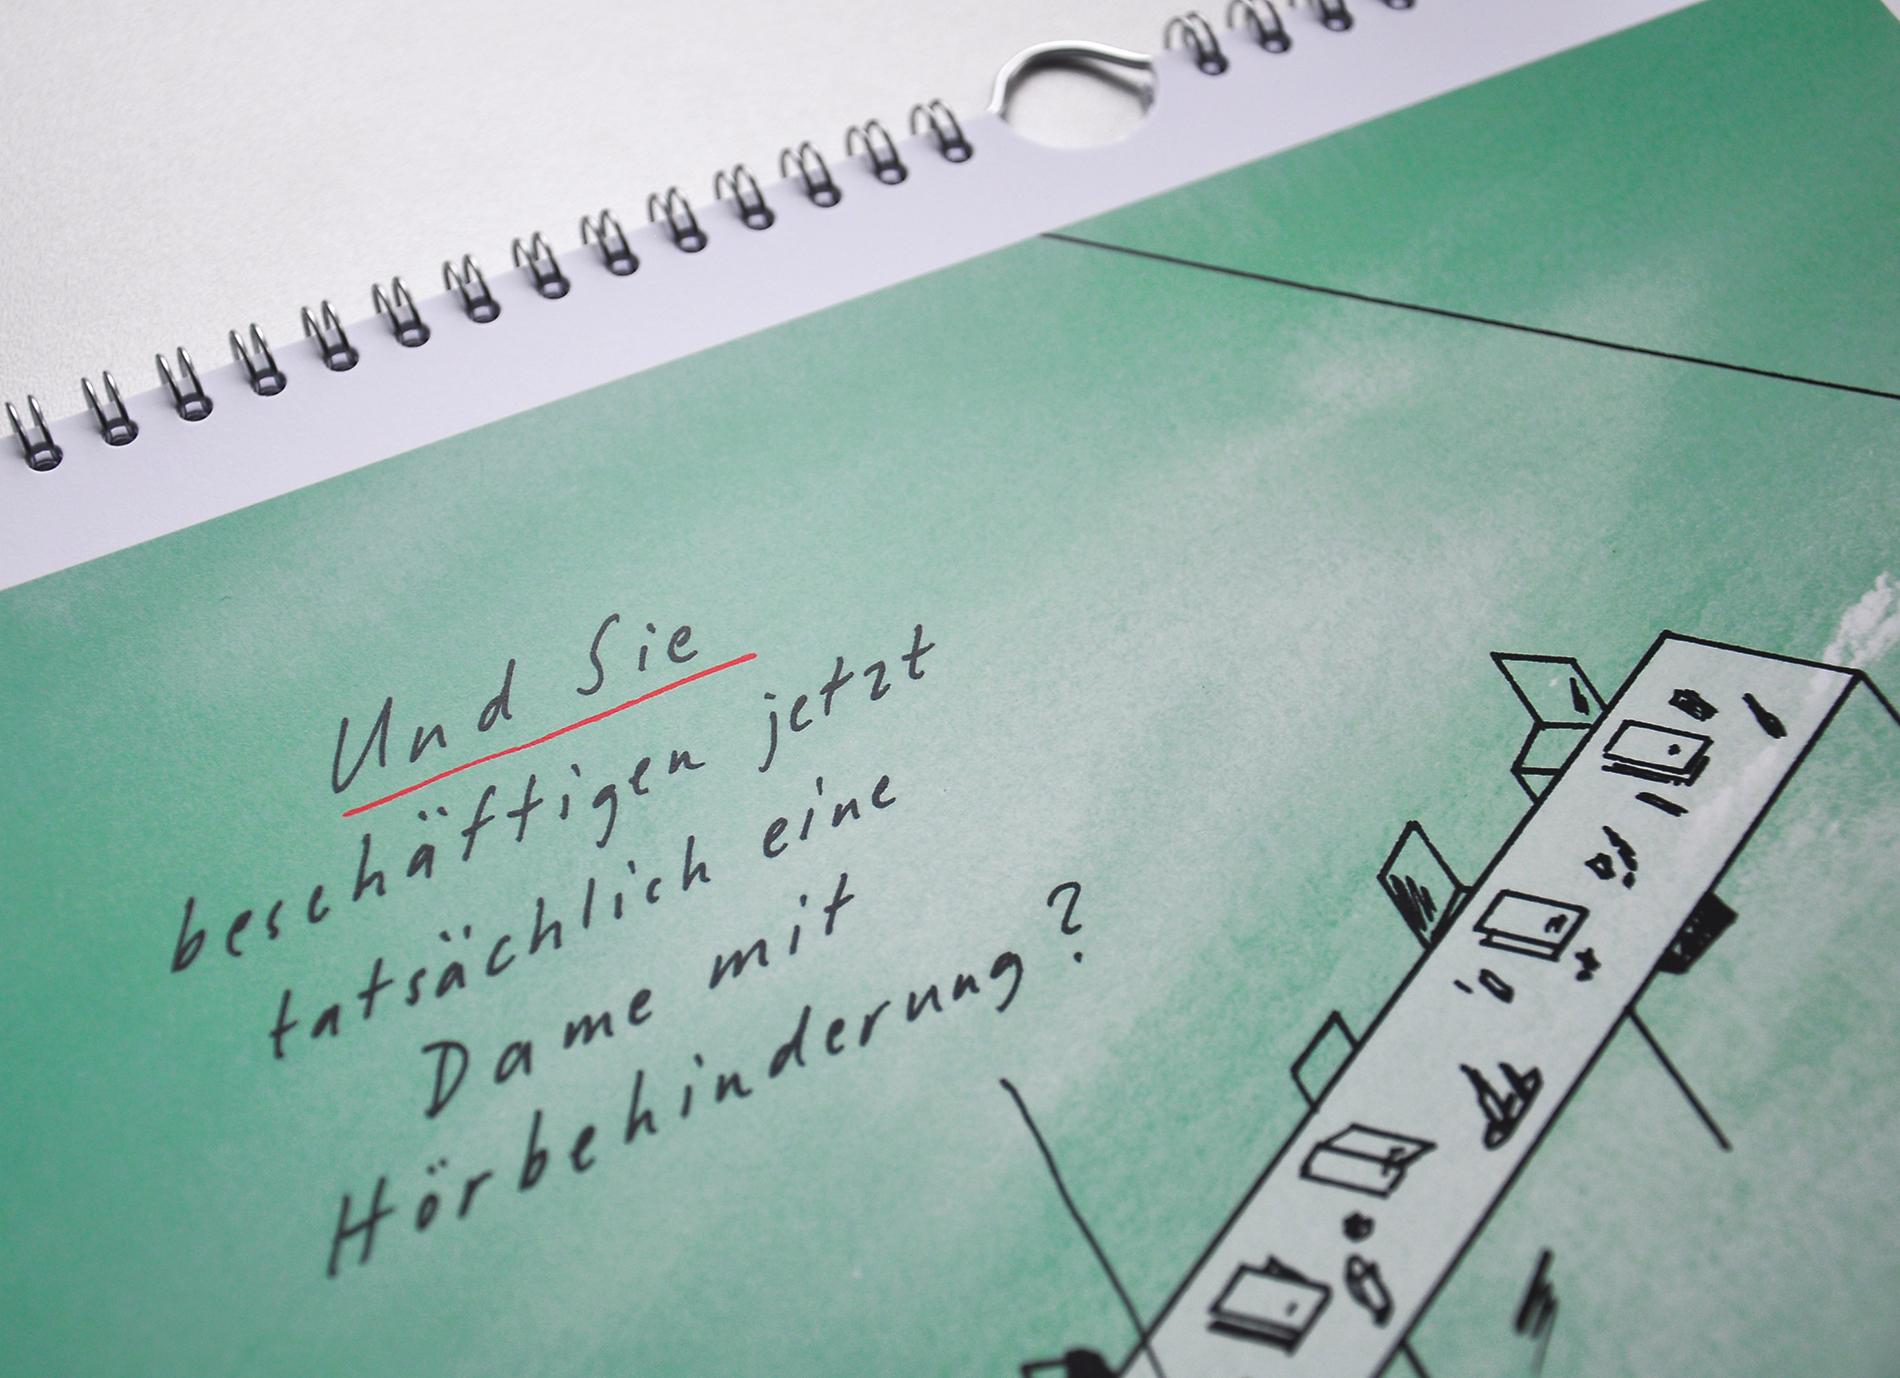 Und Sie
beschäftigen jetzt
tatsächlich eine
Dame mit
Hörbehinderung?